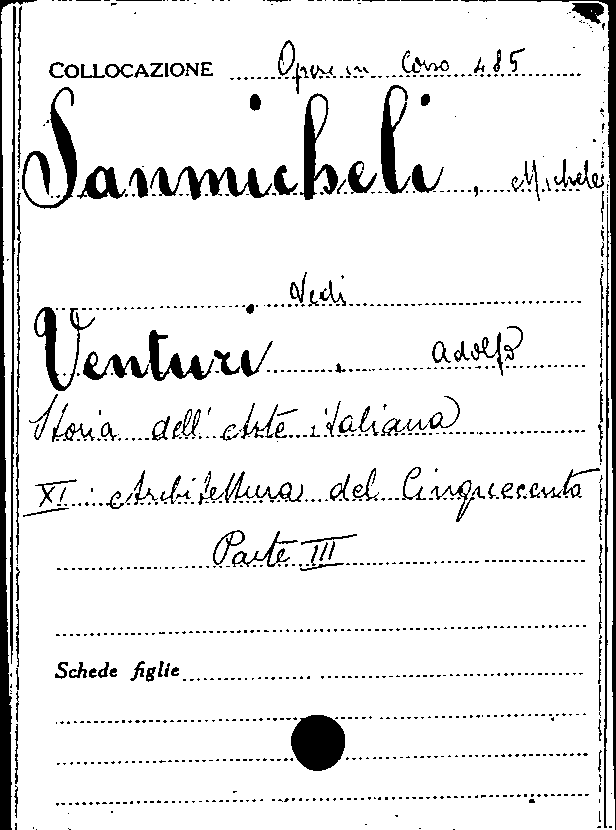 COLLOCAZIONE Opere in Corso 485
Sanmicheli, Michele
Vedi
Venturi, Adolfo
Storia dell'Arte italiana
XI. Architettura del Cinquecento
Parte III
Schede figlie